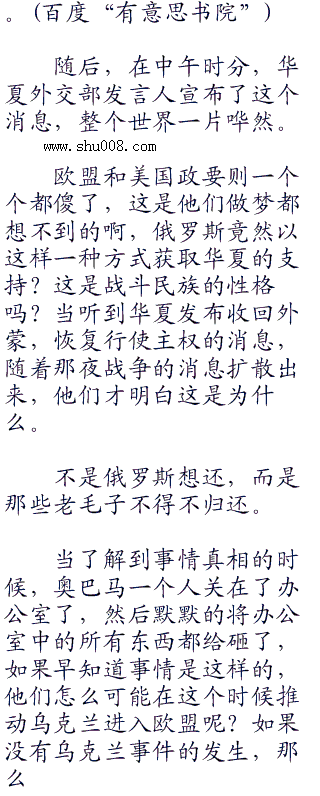 。(百度“有意思书院”)
随后，在中午时分，华
夏外交部发言人宣布了这个
消息，整个世界一片哗然。
www.shu008.com
欧盟和美国政要则一个
个都傻了，这是他们做梦都
想不到的啊，俄罗斯竟然以
这样一种方式获取华夏的支
持？这是战斗民族的性格
吗？当听到华夏发布收回外
蒙，恢复行使主权的消息，
随着那夜战争的消息扩散出
来，他们才明白这是为什
么。
不是俄罗斯想还，而是
那些老毛子不得不归还。
当了解到事情真相的时
候，奥巴马一个人关在了办
公室了，然后默默的将办公
室中的所有东西都给砸了，
如果早知道事情是这样的，
他们怎么可能在这个时候推
动乌克兰进入欧盟呢？如果
没有乌克兰事件的发生，那
么